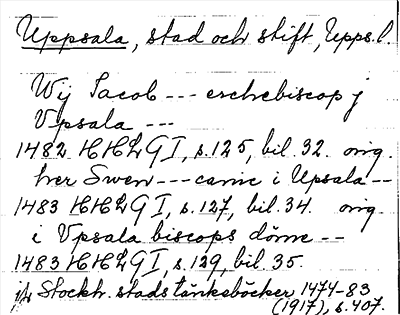 Uppsala, stad och stift, Upps. l.
Wij Jacob --- erchebiscop j
Vpsala ---
1482 HHLG I, s. 125, bil. 32. orig.
her Swen --- canic i Upsala --
1483 HHLG I, s. 127, bil. 34. orig.
i Vpsala biscops döme --
1483 HHLG I, s. 129, bil. 35.
jfr Stockh. stads tänkeböcker 1474-83
(1917), s. 407.